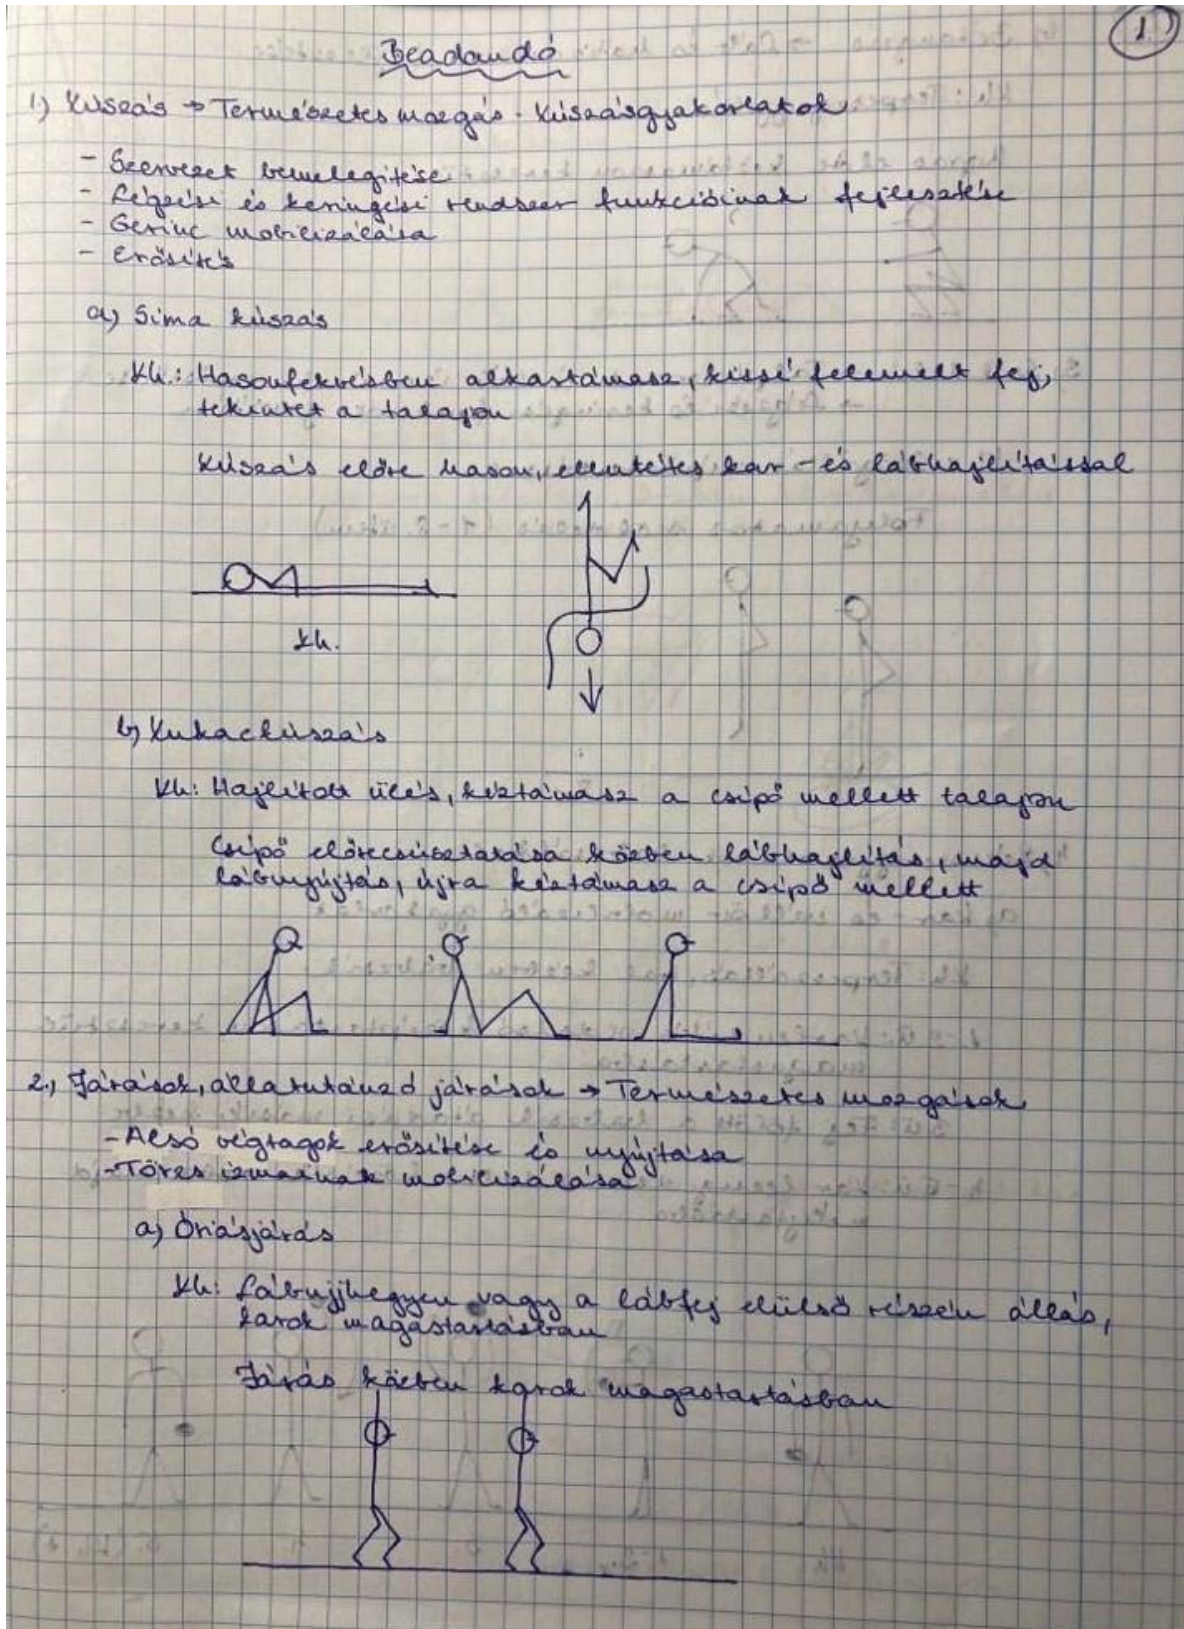 1.
Beadandó
1.) Kúszás → Természetes mozgás - Kúszásgyakorlatok
- Szervezet bemelegítése
- Légzési és keringési rendszer funkcióinak fejlesztése
- Gerinc mobilizálása
- Erősítés
a) Sima kúszás
Kh.: Hasonfekvésben alkartámasz, kissé felemelt fej,
tekintet a talajon
Kúszás előre hason, ellentétes kar - és lábhajlítással
Kh.
b) Kukackúszás
Kh: Hajlított ülés, kéztámasz a csípő mellett talajon
Csípő előrecsúsztatása közben lábhajlítás, majd
lábnyújtás, újra kéztámasz a csípő mellett
2., Járások, állatutánzó járások → Természetes mozgások
- Alsó végtagok erősítése és nyújtása
- Törzs izmainak mobilizálása
a) Óriásjárás
Kh: Lábujjhegyen vagy a lábfej elülső részén állás,
karok magastartásban
Járás közben karok magastartásban